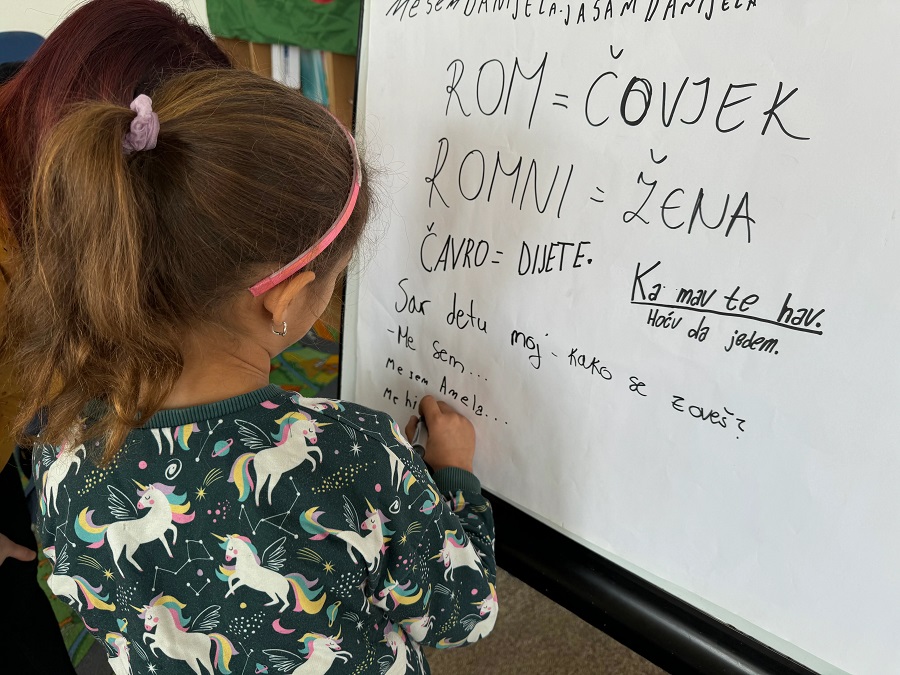 ME SEM DANIJELA. JA SAM DANIJELA
ROM = ČOVJEK
ROMNI = ŽENA
ČAVRO = DIJETE.
Ka mav te hav.
Hoću da jedem.
Sar detu moj - kako se zoveš?
- Me sem...
me sem Amela...
me hi